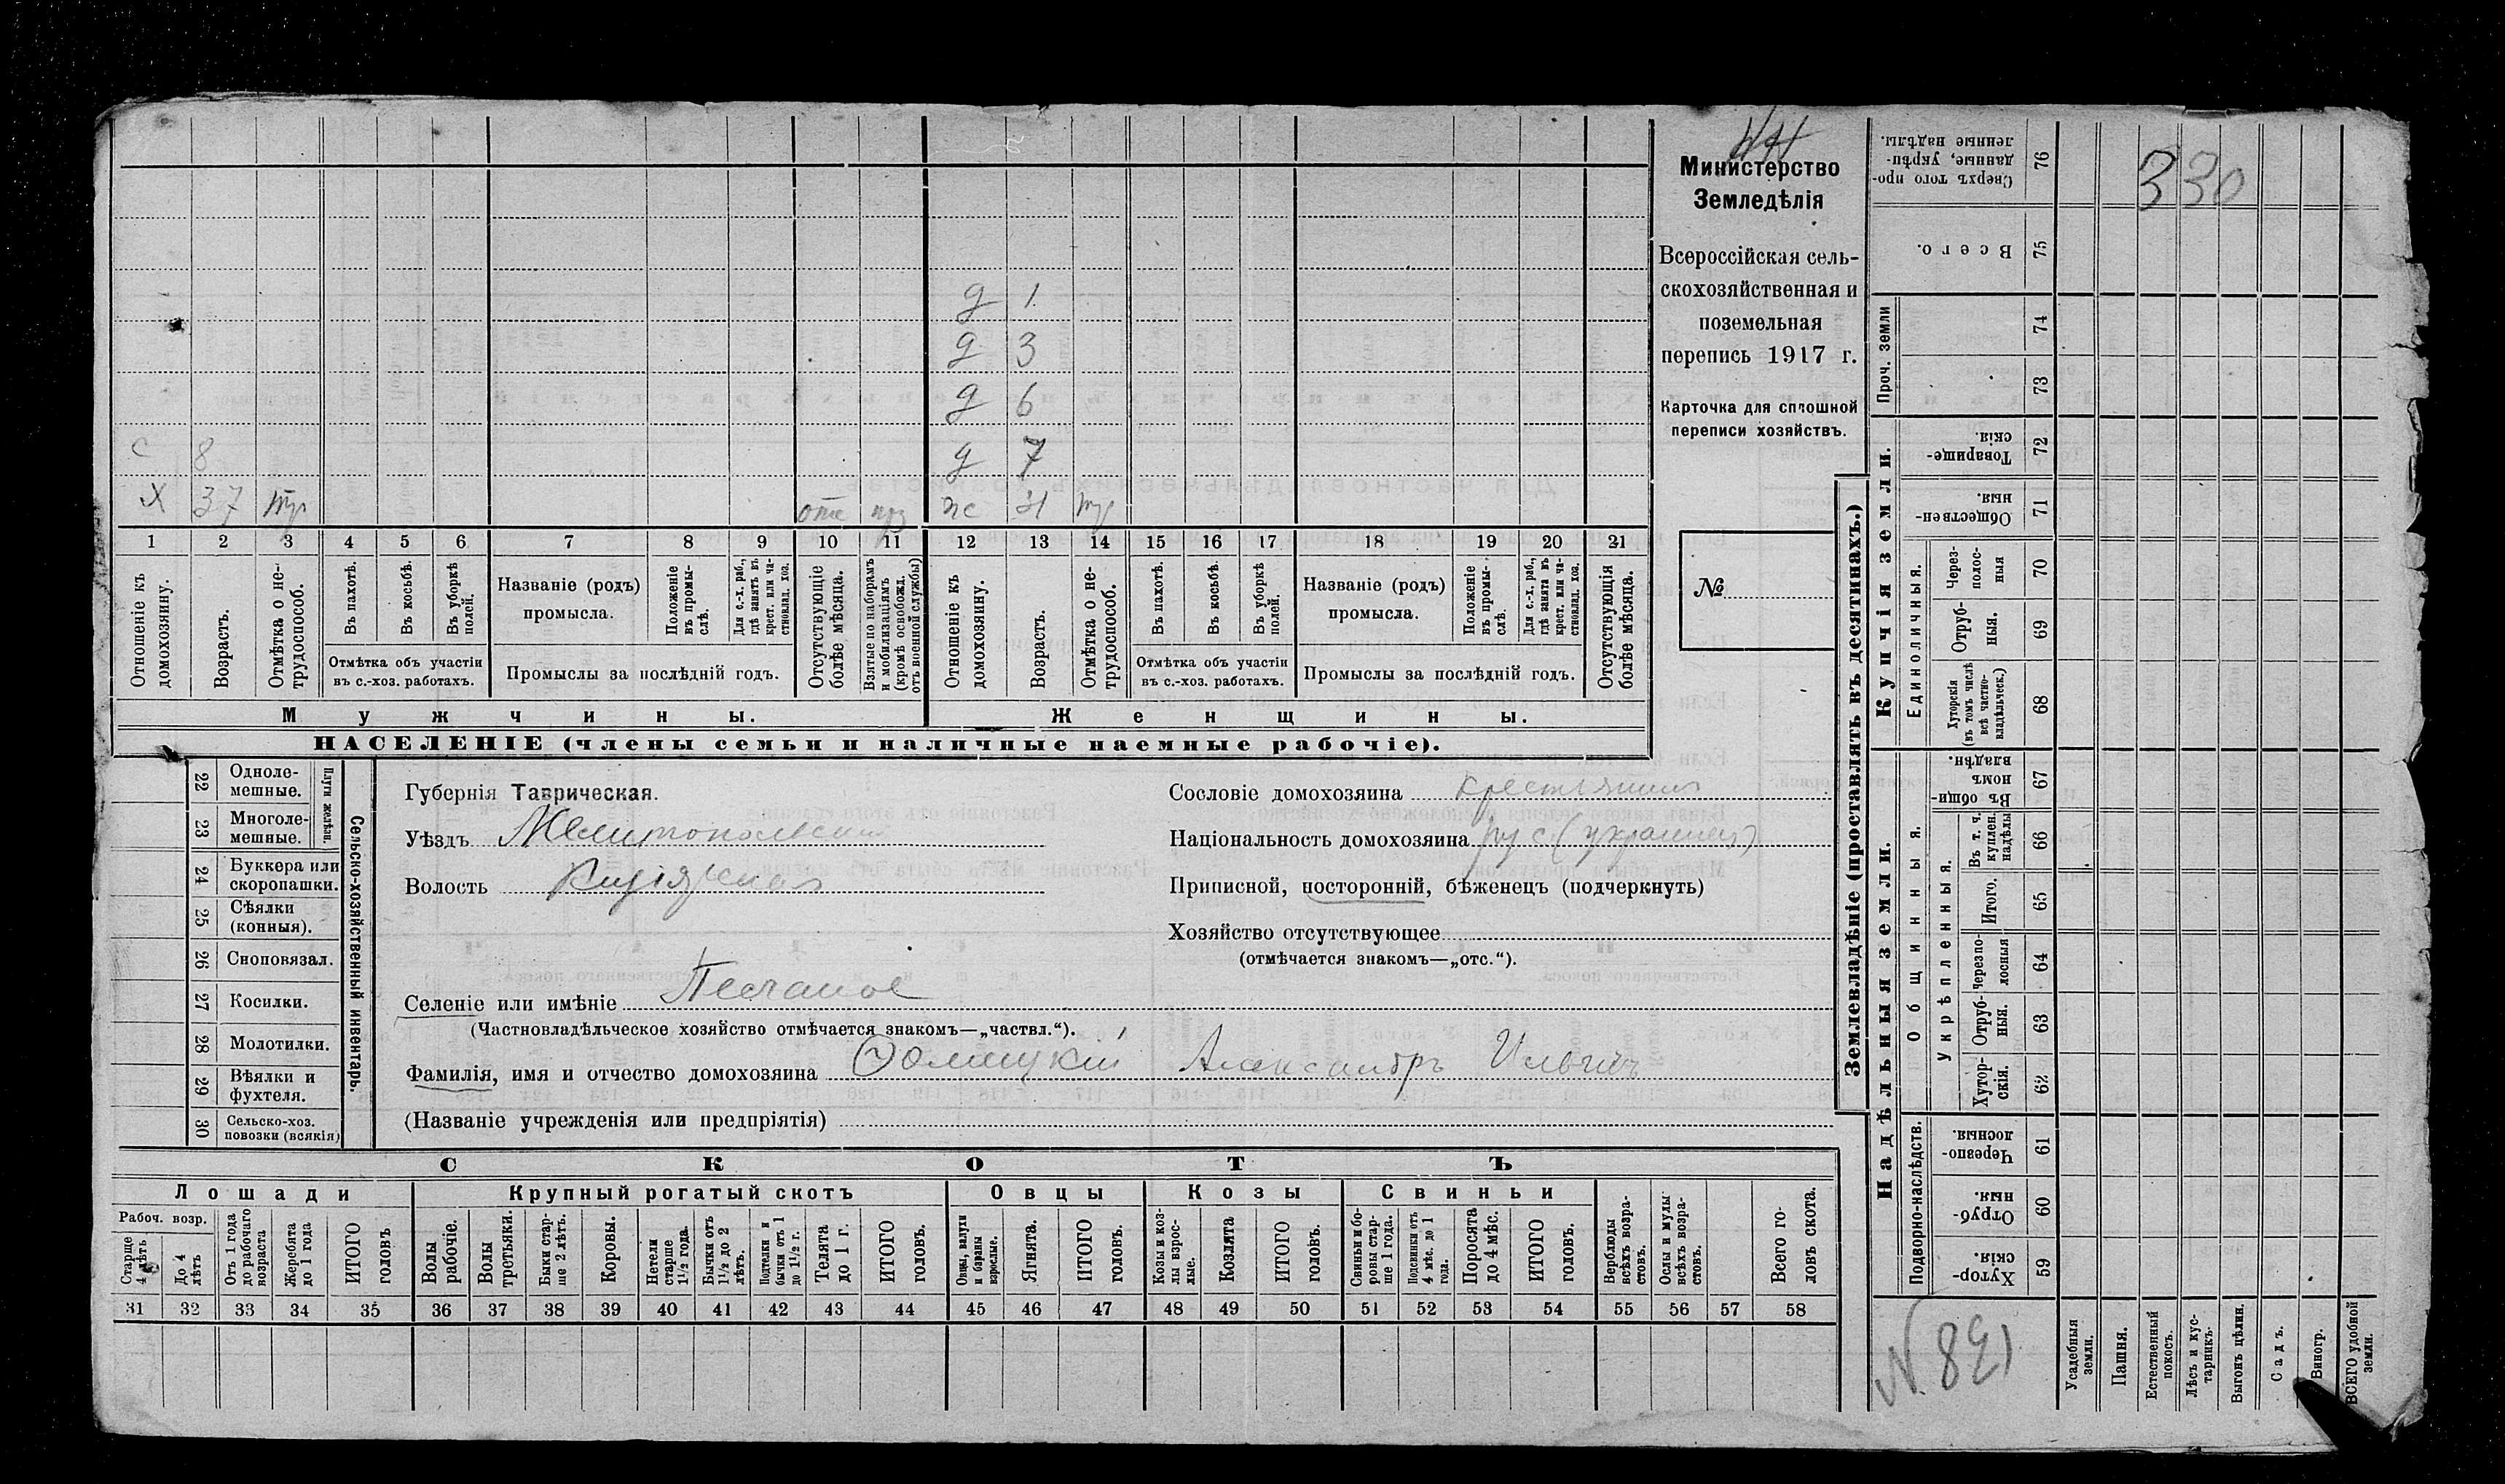 44
Министерство
Земледѣлія
Всероссійская сель-
скохозяйственная и
поземельная
перепись 1917 г.
Карточка для сплошной
переписи хозяйствъ.
№
330
д 1
д 3
д 6
с 8 д 7
х 37 тр отс ж 31 тр
1 2 3 4 5 6 7 8 9 10 11 12 13 14 15 16 17 18 19 20 21
Отношеніе къ домохозяину.
Возрастъ.
Отмѣтка о не-трудоспособ.
Въ пахотѣ.
Въ косьбѣ.
Въ уборкѣ полей.
Отмѣтка объ участіи
въ с.-хоз. работахъ.
Названіе (родъ)
промысла.
Положеніе въ промы-слѣ.
Для с.-х. раб., гдѣ занятъ въ крест. или ча-стновлад. хоз.
Промыслы за послѣдній годъ.
Отсутствующіе болѣе мѣсяца.
Взятые по наборамъ и мобилизаціямъ (кромѣ освобожд. отъ военной службы)
Отношеніе къ домохозяину.
Возрастъ.
Отмѣтка о не-трудоспособ.
Въ пахотѣ.
Въ косьбѣ.
Въ уборкѣ полей.
Отмѣтка объ участіи
въ с.-хоз. работахъ.
Названіе (родъ)
промысла.
Положеніе въ промы-слѣ.
Для с.-х. раб., гдѣ занята въ крест. или ча-стновлад. хоз.
Промыслы за послѣдній годъ.
Отсутствующія болѣе мѣсяца.
Мужчины.
Женщины.
НАСЕЛЕНІЕ (члены семьи и наличные наемные рабочіе).
Сельско-хозяйственный инвентарь.
Плуги желѣзн.
22 Одноле-мешные.
23 Многоле-мешные.
24 Буккера или скоропашки.
25 Сѣялки (конныя).
26 Сноповязал.
27 Косилки.
28 Молотилки.
29 Вѣялки и фухтеля.
30 Сельско-хоз. повозки (всякія)
Губернія Таврическая.
Уѣздъ Мелитопольскій
Волость Кизіярская
Селеніе или имѣніе Песчаное
(Частновладѣльческое хозяйство отмѣчается знакомъ—„частвл.“).
Фамилія, имя и отчество домохозяина Долицкій Александръ Ильичъ
(Названіе учрежденія или предпріятія)
Сословіе домохозяина крестьянинъ
Національность домохозяина рус (украинец)
Приписной, посторонній, бѣженецъ (подчеркнуть)
Хозяйство отсутствующее
(отмѣчается знакомъ—„отс.“).
СКОТЪ
Лошади
Рабоч. возр.
Старше 4 лѣтъ
До 4 лѣтъ
Отъ 1 года до рабочаго возраста
Жеребята до 1 года
ИТОГО головъ
Крупный рогатый скотъ
Волы рабочіе.
Волы третьяки.
Быки стар-ше 2 лѣтъ.
Коровы.
Нетели старше 1½ года.
Бычки отъ 1½ до 2 лѣтъ.
Подтелки и бычки отъ 1 до 1½ г.
Телята до 1 г.
ИТОГО головъ.
Овцы
Овцы, валухи и бараны взрослые.
Ягнята.
ИТОГО головъ.
Козы
Козы и коз-лы взрос-лые.
Козлята
ИТОГО головъ.
Свиньи
Свиньи и бо-ровы стар-ше 1 года.
Подсвинки отъ 4 мѣс. до 1 года.
Поросята до 4 мѣс.
ИТОГО головъ.
Верблюды всѣхъ возра-стовъ.
Ослы и мулы всѣхъ возра-стовъ.
Всего го-ловъ скота.
31 32 33 34 35 36 37 38 39 40 41 42 43 44 45 46 47 48 49 50 51 52 53 54 55 56 57 58
Землевладѣніе (проставлять въ десятинахъ.)
76 Сверхъ того про-данные, укрѣп-ленные надѣлы.
75 Всего.
Купчія земли.
Проч. земли
74
73
72 Товарище-скія.
71 Обществен-ныя.
Единоличныя.
70 Через-полос-ныя
69 Отруб-ныя.
68 Хуторскія (въ томъ числѣ всѣ частно-владѣльческ.)
Надѣльныя земли.
Общинныя.
67 Въ общин-номъ владѣн.
Укрѣпленныя.
66 Въ т. ч. куплен. надѣлы
65 Итого.
64 Черезпо-лосныя
63 Отруб-ныя.
62 Хутор-скія.
Подворно-наслѣдств.
61 Черезпо-лосныя.
60 Отруб-ныя.
59 Хутор-скія.
Усадебныя земли.
Пашня.
Естественный покосъ.
Лѣсъ и кус-тарникъ.
Выгонъ цѣлин.
Садъ.
Виногр.
ВСЕГО удобной земли.